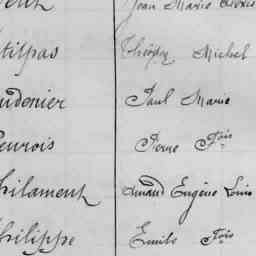 Jean Marie
titpas Théophile Michel
udonier Paul Marie
eurois Pierre Fois
hilament Armand Eugène Louis
hilippe Emile Fois